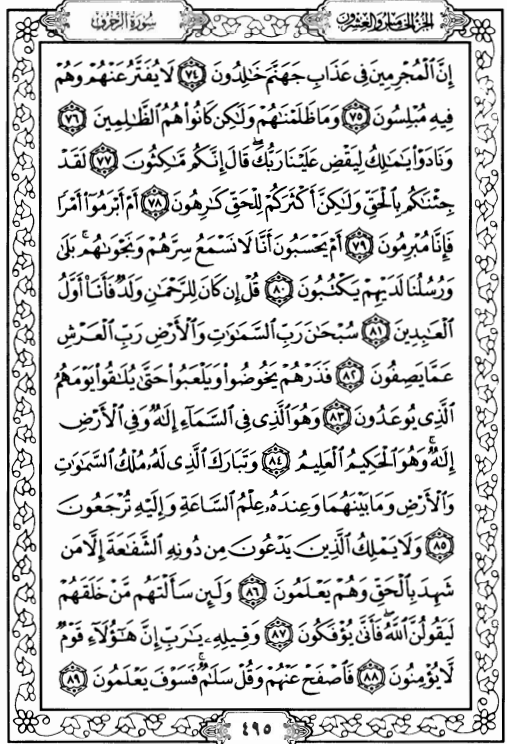 الجزء الخامس والعشرون سورة الزخرف
إِنَّ ٱلْمُجْرِمِينَ فِى عَذَابِ جَهَنَّمَ خَٰلِدُونَ ٧٤ لَا يُفَتَّرُ عَنْهُمْ وَهُمْ
فِيهِ مُبْلِسُونَ ٧٥ وَمَا ظَلَمْنَٰهُمْ وَلَٰكِن كَانُوا۟ هُمُ ٱلظَّٰلِمِينَ ٧٦
وَنَادَوْا۟ يَٰمَٰلِكُ لِيَقْضِ عَلَيْنَا رَبُّكَ ۖ قَالَ إِنَّكُم مَّٰكِثُونَ ٧٧ لَقَدْ
جِئْنَٰكُم بِٱلْحَقِّ وَلَٰكِنَّ أَكْثَرَكُمْ لِلْحَقِّ كَٰرِهُونَ ٧٨ أَمْ أَبْرَمُوٓا۟ أَمْرًا
فَإِنَّا مُبْرِمُونَ ٧٩ أَمْ يَحْسَبُونَ أَنَّا لَا نَسْمَعُ سِرَّهُمْ وَنَجْوَىٰهُم ۚ بَلَىٰ
وَرُسُلُنَا لَدَيْهِمْ يَكْتُبُونَ ٨٠ قُلْ إِن كَانَ لِلرَّحْمَٰنِ وَلَدٌ فَأَنَا۠ أَوَّلُ
ٱلْعَٰبِدِينَ ٨١ سُبْحَٰنَ رَبِّ ٱلسَّمَٰوَٰتِ وَٱلْأَرْضِ رَبِّ ٱلْعَرْشِ
عَمَّا يَصِفُونَ ٨٢ فَذَرْهُمْ يَخُوضُوا۟ وَيَلْعَبُوا۟ حَتَّىٰ يُلَٰقُوا۟ يَوْمَهُمُ
ٱلَّذِى يُوعَدُونَ ٨٣ وَهُوَ ٱلَّذِى فِى ٱلسَّمَآءِ إِلَٰهٌ وَفِى ٱلْأَرْضِ
إِلَٰهٌ ۚ وَهُوَ ٱلْحَكِيمُ ٱلْعَلِيمُ ٨٤ وَتَبَارَكَ ٱلَّذِى لَهُۥ مُلْكُ ٱلسَّمَٰوَٰتِ
وَٱلْأَرْضِ وَمَا بَيْنَهُمَا وَعِندَهُۥ عِلْمُ ٱلسَّاعَةِ وَإِلَيْهِ تُرْجَعُونَ
٨٥ وَلَا يَمْلِكُ ٱلَّذِينَ يَدْعُونَ مِن دُونِهِ ٱلشَّفَٰعَةَ إِلَّا مَن
شَهِدَ بِٱلْحَقِّ وَهُمْ يَعْلَمُونَ ٨٦ وَلَئِن سَأَلْتَهُم مَّنْ خَلَقَهُمْ
لَيَقُولُنَّ ٱللَّهُ ۖ فَأَنَّىٰ يُؤْفَكُونَ ٨٧ وَقِيلِهِۦ يَٰرَبِّ إِنَّ هَٰٓؤُلَآءِ قَوْمٌ
لَّا يُؤْمِنُونَ ٨٨ فَٱصْفَحْ عَنْهُمْ وَقُلْ سَلَٰمٌ ۚ فَسَوْفَ يَعْلَمُونَ ٨٩
٤٩٥